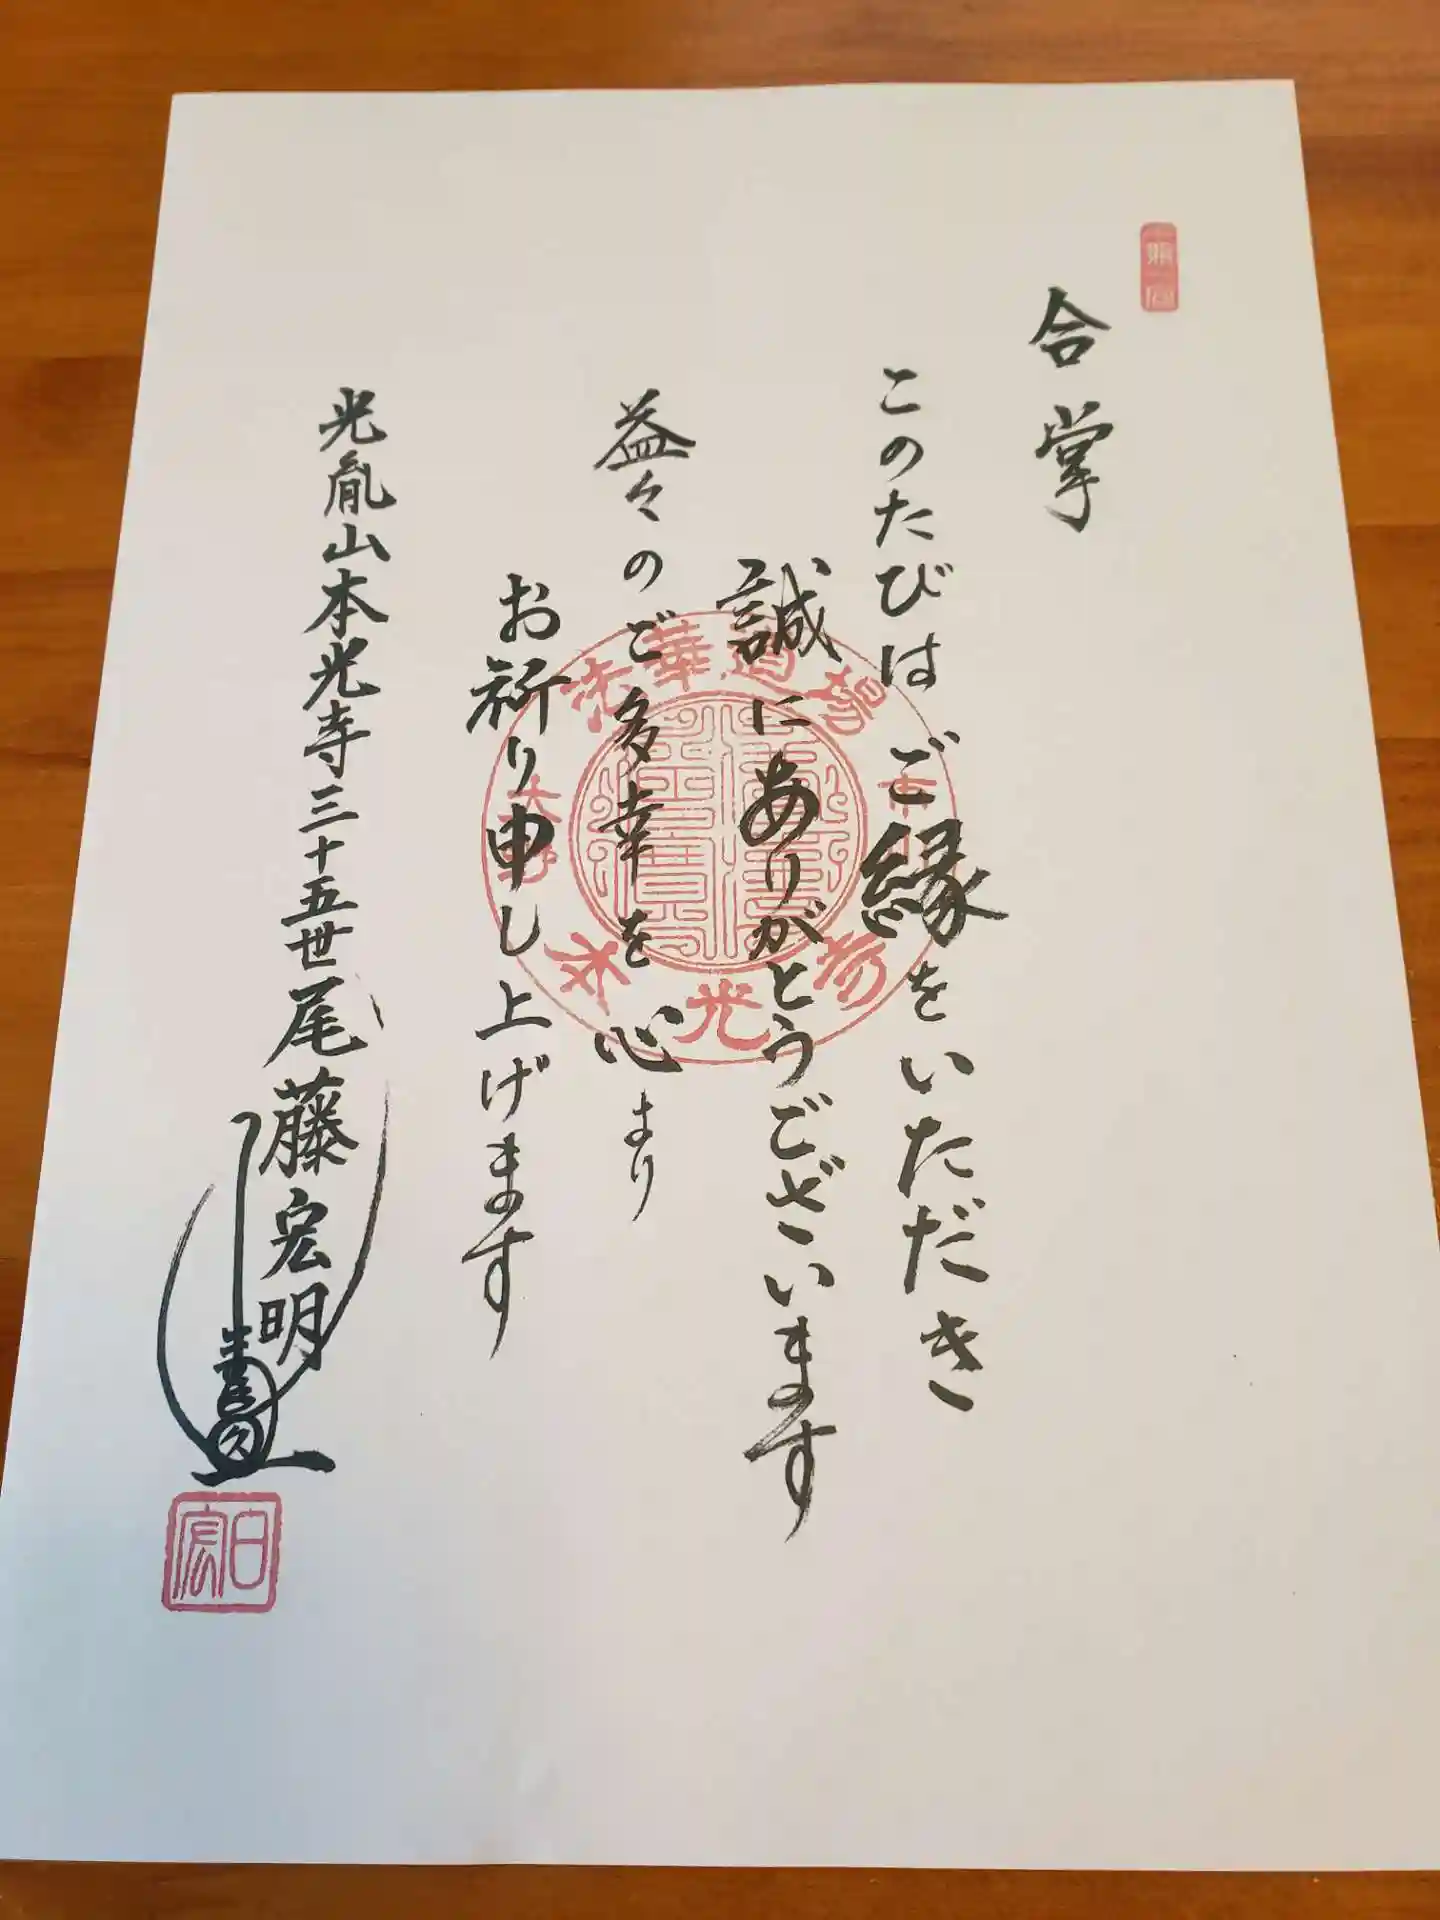 合掌
このたびはご縁をいただき
誠にありがとうございます
益々のご多幸を心より
お祈り申し上げます
光胤山本光寺三十五世尾藤宏明
法華道場
大野
本光寺